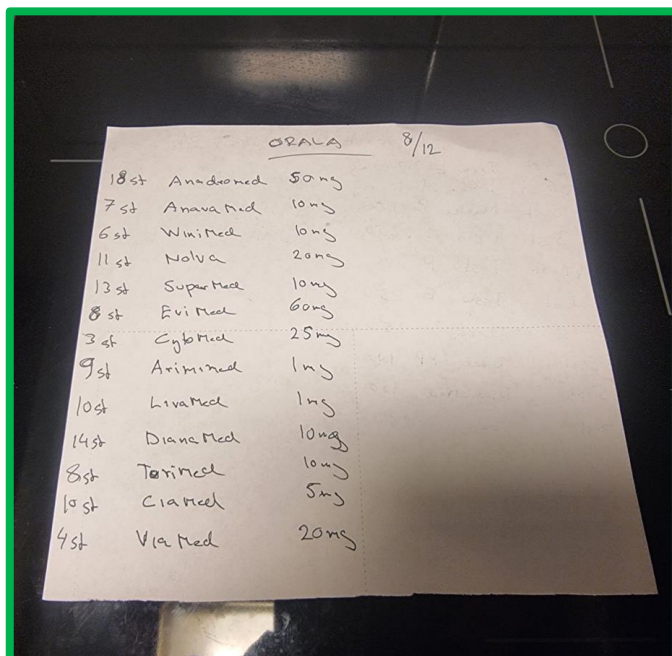 ORALA 8/12
18st Anadromed 50mg
7st AnavaMed 10mg
6st WiniMed 10mg
11st Nolva 20mg
13st SuperMed 10mg
8st EviMed 60mg
3st CytoMed 25mg
9st Arimimed 1mg
10st LivaMed 1mg
14st DianaMed 10mg
8st ToriMed 10mg
10st CiaMed 5mg
4st ViaMed 20mg